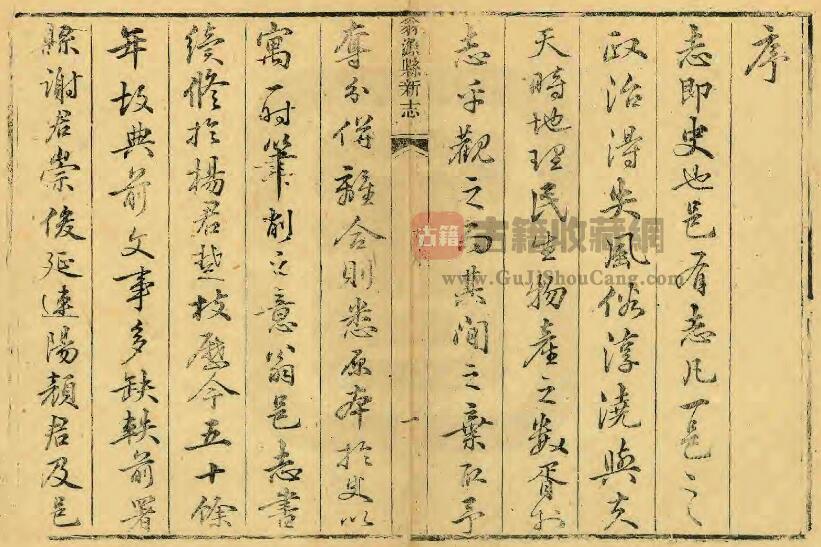 序
志即史也邑有志凡一邑之
政治得失風俗淳澆與夫
天時地理民生物產之數胥於
志乎觀之而其間之棄取予
翁源縣新志
一
奪分併離合則悉原本於史以
寓一時筆削之意翁邑志書
續修於楊君楚枝歷今五十餘
年故典前文事多缺軼前署
縣謝君崇俊延連陽顏君及邑
古籍
古籍收藏網
www.GuJiShouCang.com